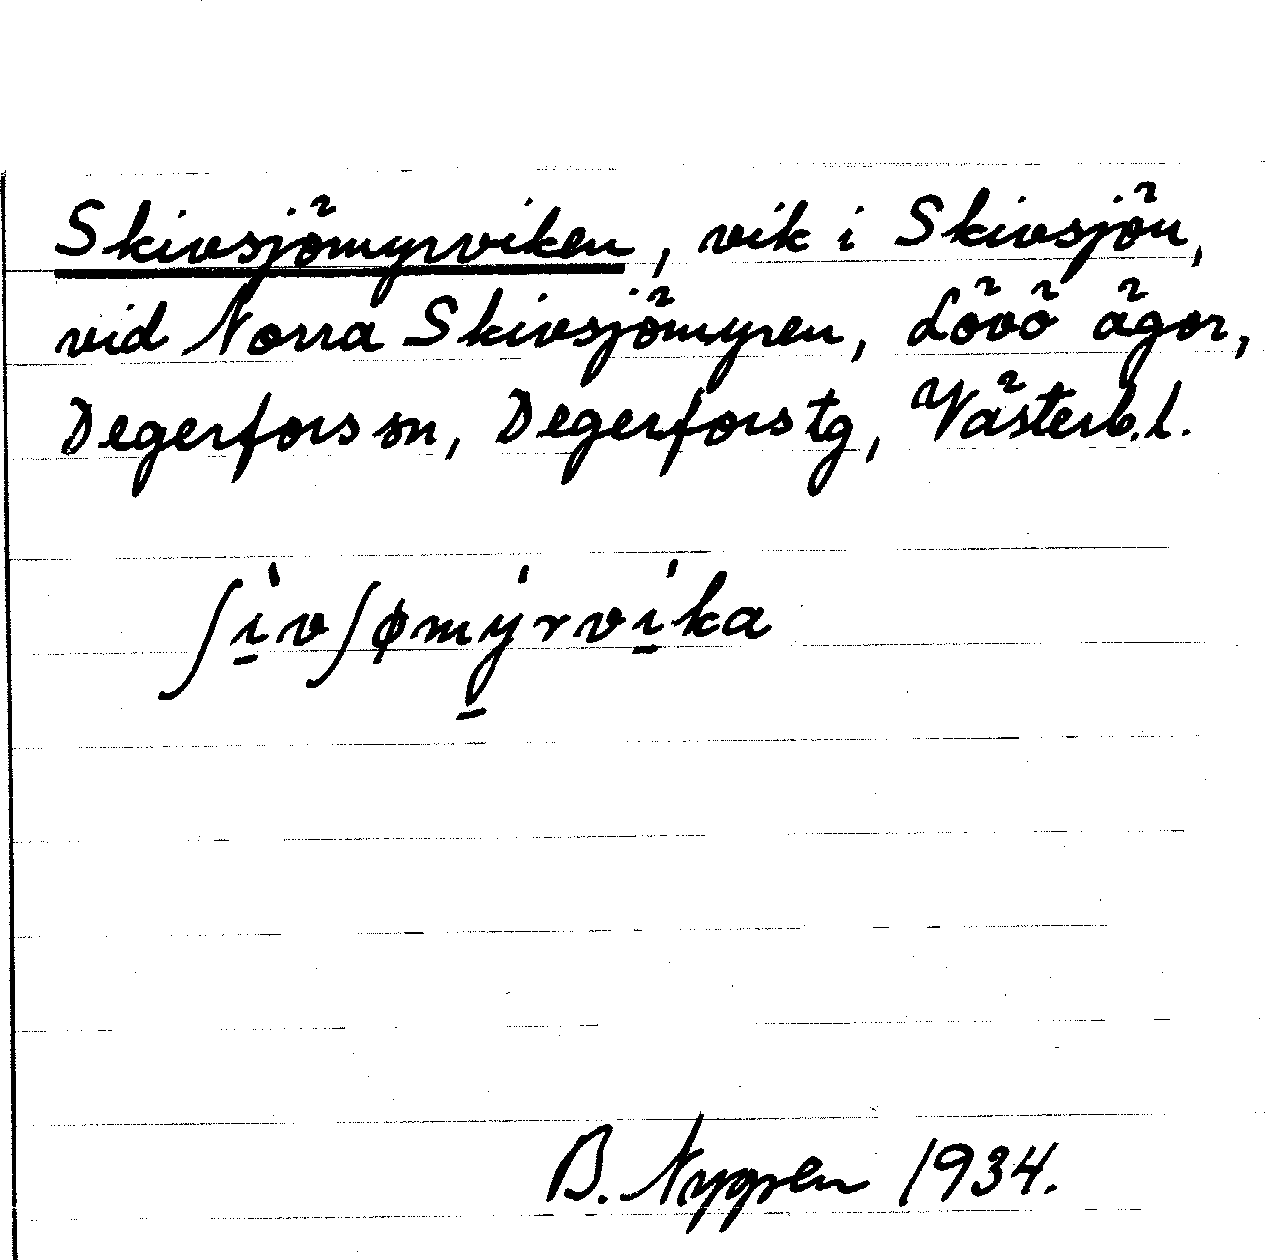 Skivsjömyrviken, vik i Skivsjön,
vid Norra Skivsjömyren, Lövö ägor,
Degerfors sn, Degerfors tg, Västerb.l.
ʃi̠vʃømy̠rvi̠ka
B. Nygren 1934.